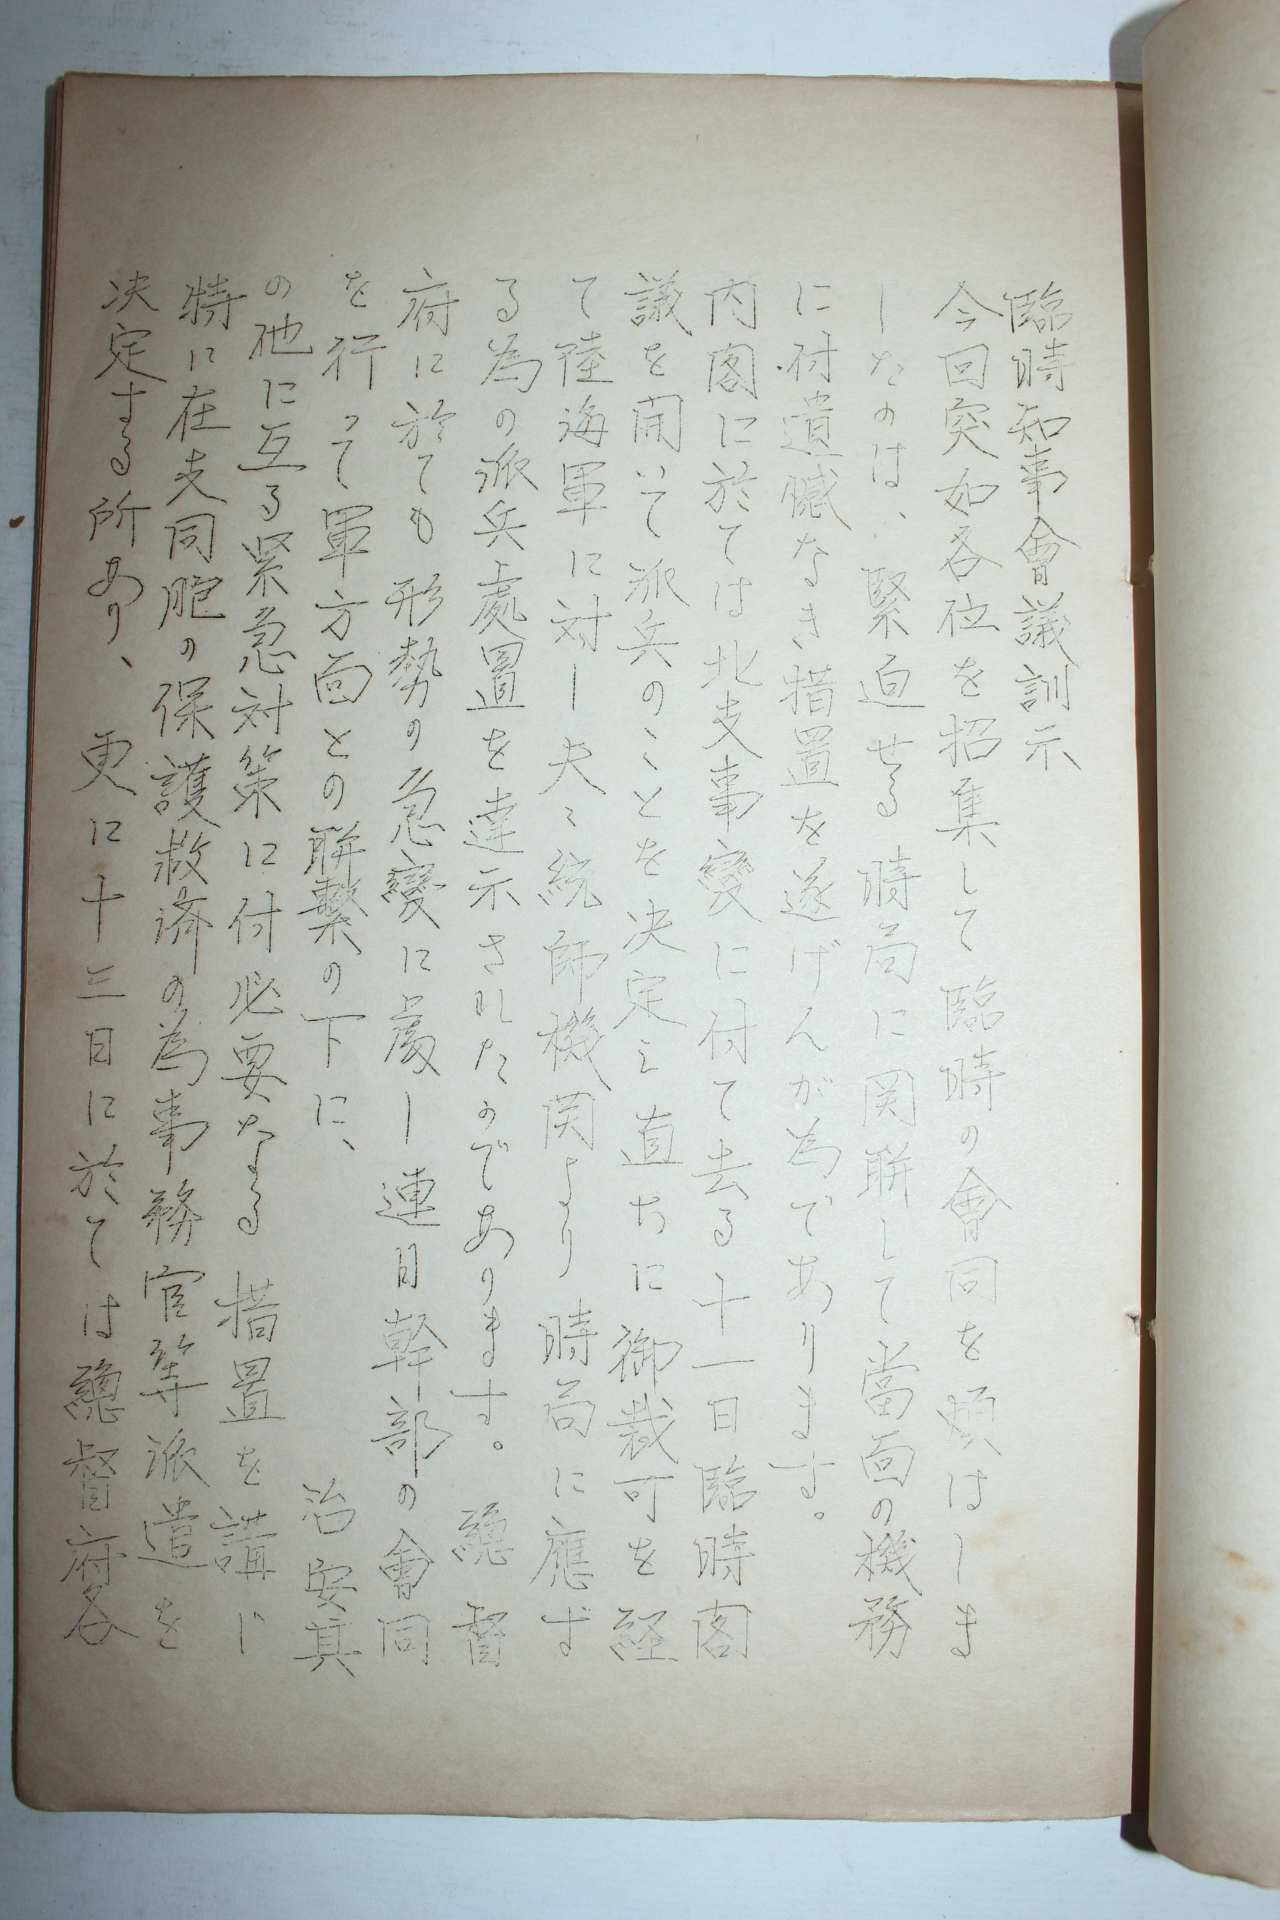 臨時知事會議訓示
今回突如各位を招集して臨時の會同を煩はしま
したのは、緊迫せる時局に関聯して當面の機務
に付遺憾なき措置を遂げんが為であります。
内閣に於ては北支事變に付て去る十一日臨時閣
議を開いて派兵のことを决定し直ちに御裁可を経
て陸海軍に対し夫々統師機関より時局に應ず
る為の派兵處置を達示されたのであります。総督
府に於ても形勢の急變に處し連日幹部の會同
を行って軍方面との聨繋の下に、治安其
の他に互る緊急対策に付必要なる措置を講じ
特に在支同胞の保護救済の為事務官等派遣を
决定する所あり、更に十三日に於ては總督府各